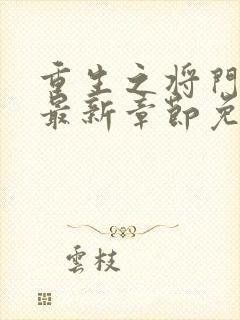 重生之将門
最新章節免
雲枝